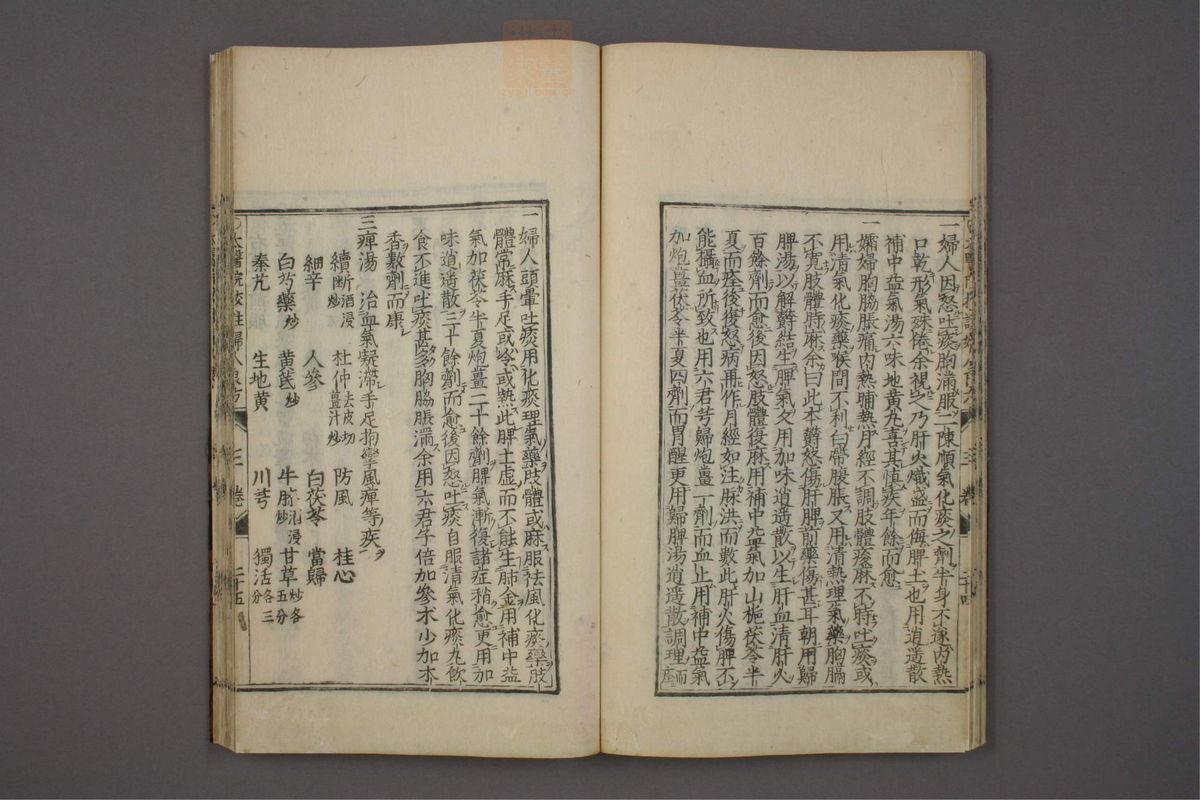 一婦人因怒吐痰胸滿服二陳順氣化痰之劑半身不遂內熱
口乾形氣殊倦余視之乃肝火熾盛而侮脾土也用逍遙散
補中益氣湯六味地黃丸喜其慎疾年餘而愈
一孀婦胸脇脹痛內熱晡熱月經不調肢體痠麻不時吐痰或
用清氣化痰藥喉間不利白帶腹脹又用清熱理氣藥胸膈
不寬肢體時麻余曰此本鬱怒傷肝脾前藥傷甚耳朝用歸
脾湯以解鬱結生脾氣夕用加味逍遙散以生肝血清肝火
百餘劑而愈後因怒肢體復麻用補中益氣加山梔茯苓半
夏而痊後復怒病再作月經如注脉洪而數此肝火傷脾不
能攝血所致也用六君芎歸炮薑一劑而血止用補中益氣
加炮薑茯苓半夏四劑而胃醒更用歸脾湯逍遙散調理而痊
三 卷
一婦人頭暈吐痰用化痰理氣藥肢體或麻服袪風化痰藥肢
體常麻手足或冷或熱此脾土虛而不能生肺金用補中益
氣加茯苓半夏炮薑二十餘劑脾氣漸復諸症稍愈更用加
味逍遙散三十餘劑而愈後因怒吐痰自服清氣化痰丸飲
食不進吐痰甚多胸脇脹滿余用六君子倍加參朮少加木
香數劑而康
三痺湯 治血氣凝滯手足拘攣風痺等疾
續斷酒浸炒 杜仲去皮切薑汁炒 防風 桂心
細辛 人參 白茯苓 當歸
白芍藥炒 黃芪炒 牛膝酒浸炒 甘草炒各五分
秦艽 生地黃 川芎 獨活各三分
太醫院校註婦人良方 三 卷 二十五